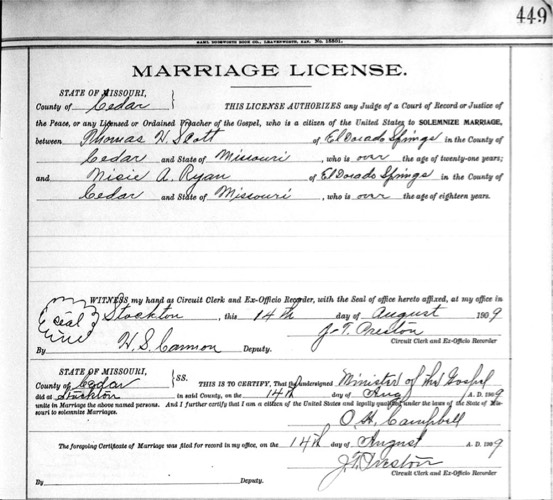 449
MARRIAGE LICENSE.
STATE OF MISSOURI,
County of Cedar THIS LICENSE AUTHORIZES any Judge of a Court of Record or Justice of
the Peace, or any Licensed or Ordained Preacher of the Gospel, who is a citizen of the United States to SOLEMNIZE MARRIAGE,
between Thomas H. Scott of El Dorado Springs in the County of
Cedar and State of Missouri, who is over the age of twenty-one years;
and Nisie A. Ryan of El Dorado Springs in the County of
Cedar and State of Missouri, who is over the age of eighteen years.
WITNESS my hand as Circuit Clerk and Ex-Officio Recorder, with the Seal of office hereto affixed, at my office in
Seal Stockton, this 14th day of August 1909
J. T. Preston
Circuit Clerk and Ex-Officio Recorder
By H. S. Cannon Deputy.
STATE OF MISSOURI,
County of Cedar SS. THIS IS TO CERTIFY, That the undersigned Minister of the Gospel
did at Stockton in said County, on the 14th day of Aug A. D. 1909
unite in Marriage the above named persons. And I further certify that I am a citizen of the United States and legally qualified under the laws of the State of Mis-
souri to solemnize Marriages.
O. H. Campbell
The foregoing Certificate of Marriage was filed for record in my office, on the 14th day of August A. D. 1909
J. T. Preston
Circuit Clerk and Ex-Officio Recorder
By Deputy.